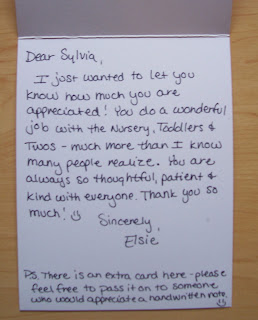 Dear Sylvia,
I just wanted to let you
know how much you are
appreciated! You do a wonderful
job with the Nursery, Toddlers &
Twos - much more than I know
many people realize. You are
always so thoughtful, patient &
kind with everyone. Thank you so
much! ☺
Sincerely,
Elsie
PS. There is an extra card here - please
feel free to pass it on to someone
who would appreciate a handwritten note. ☺